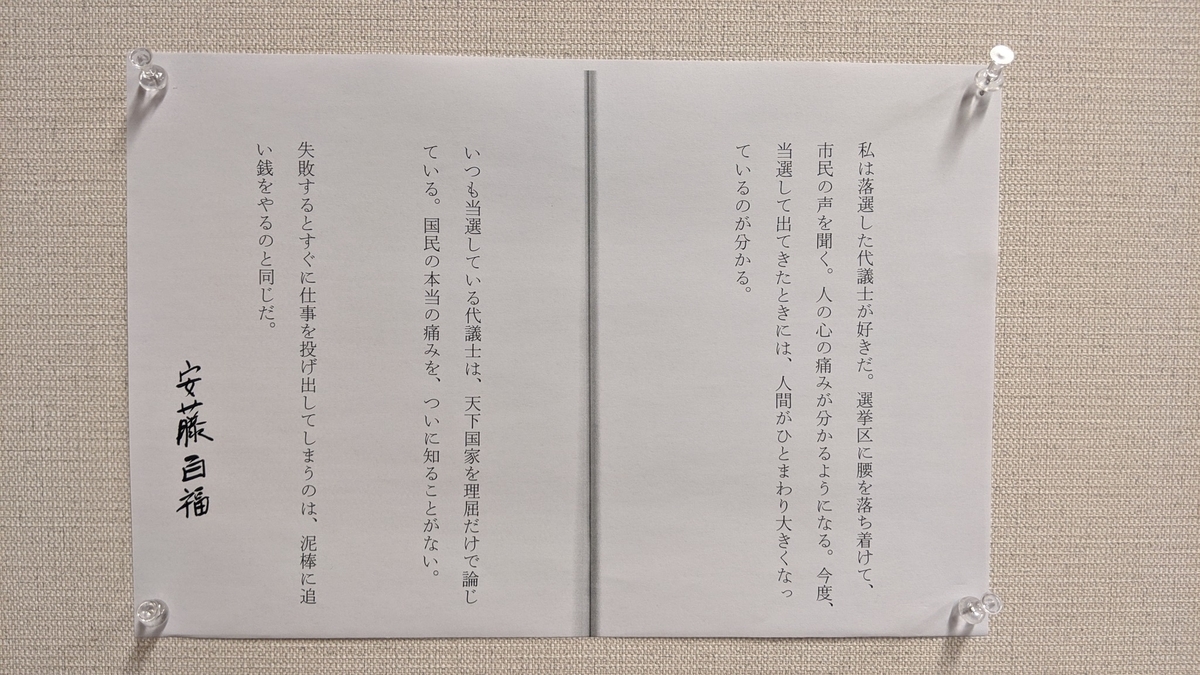 私は落選した代議士が好きだ。選挙区に腰を落ち着けて、
市民の声を聞く。人の心の痛みが分かるようになる。今度、
当選して出てきたときには、人間がひとまわり大きくなっ
ているのが分かる。
いつも当選している代議士は、天下国家を理屈だけで論じ
ている。国民の本当の痛みを、ついに知ることがない。
失敗するとすぐに仕事を投げ出してしまうのは、泥棒に追
い銭をやるのと同じだ。
安藤百福